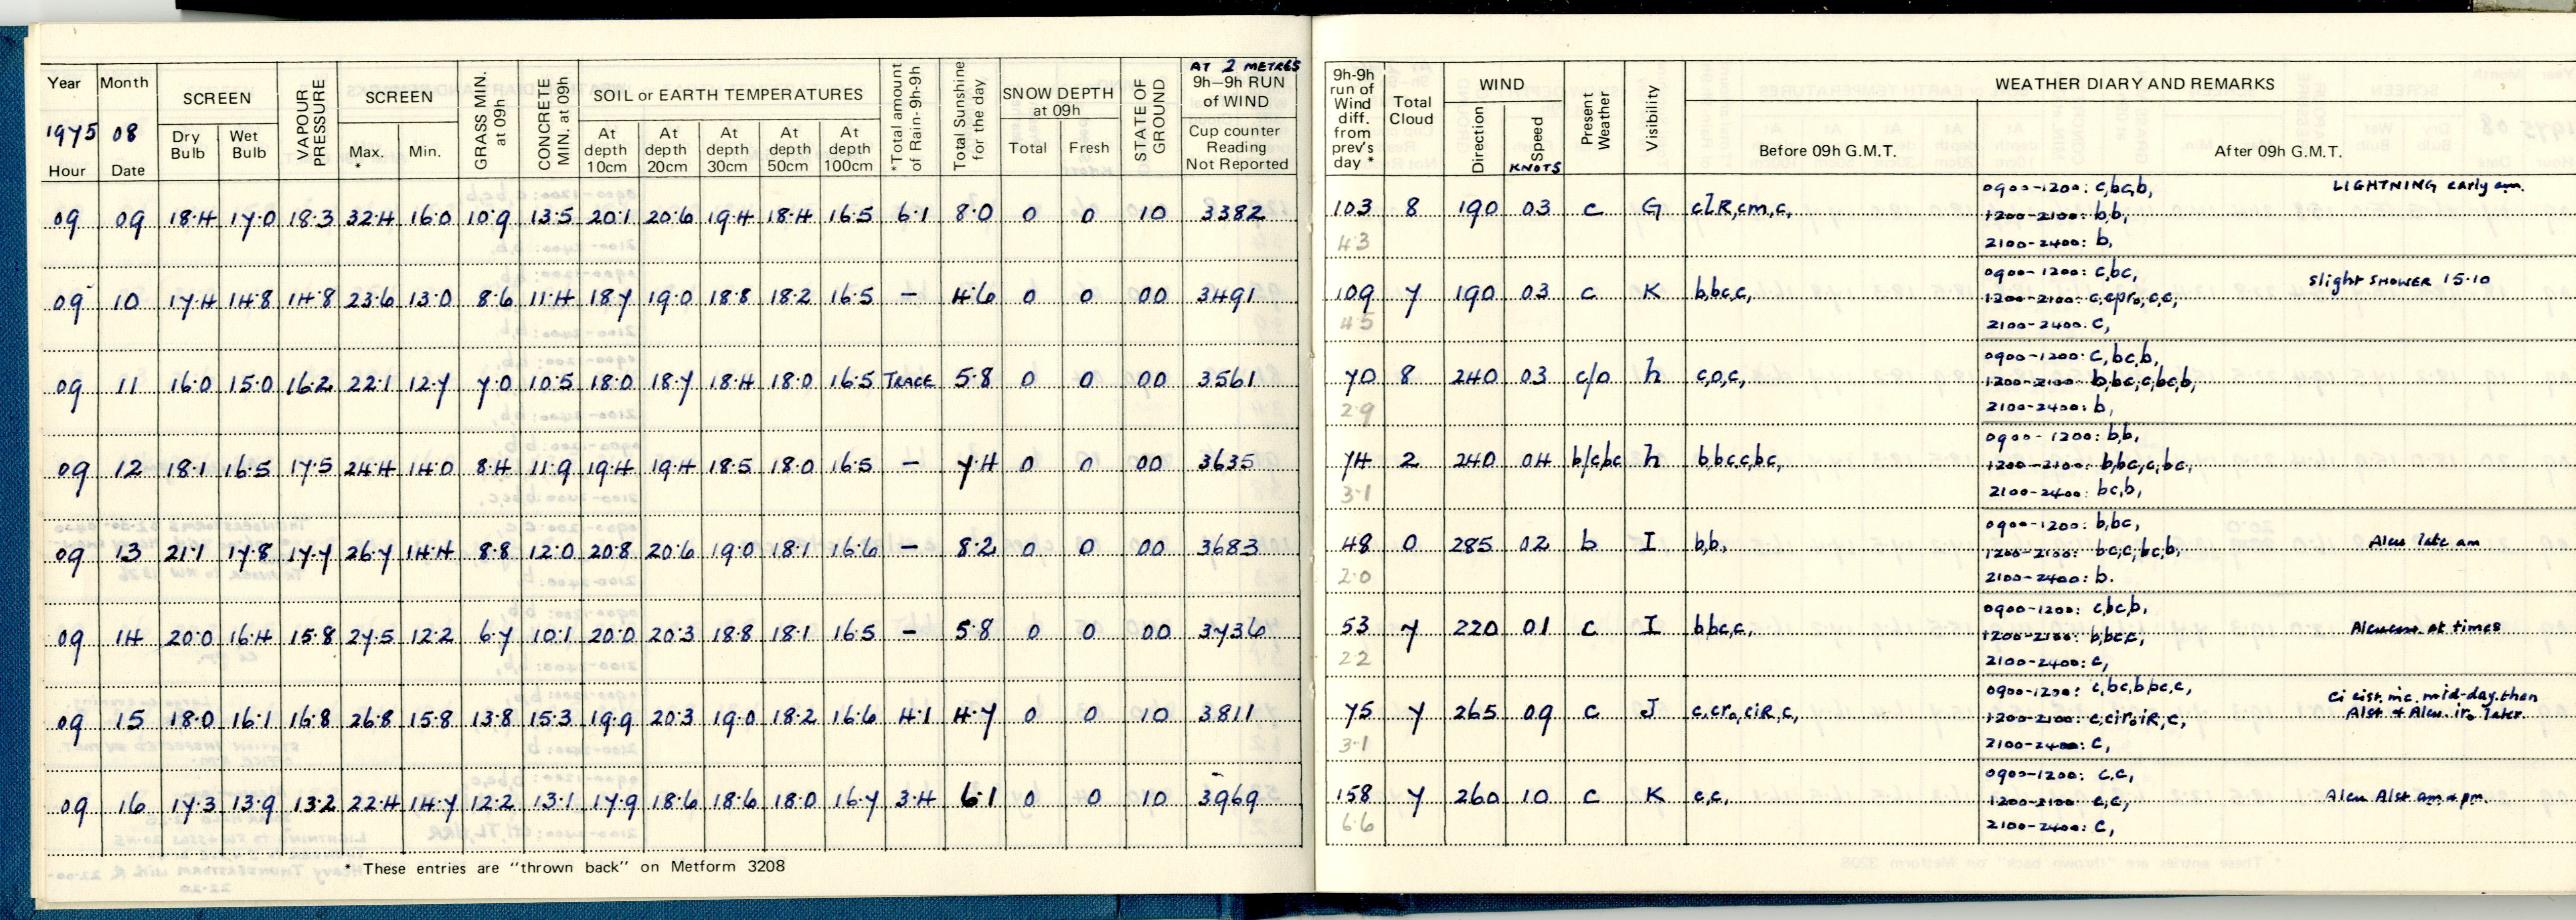 Year Month SCREEN VAPOUR PRESSURE SCREEN GRASS MIN. at 09h CONCRETE MIN. at 09h SOIL or EARTH TEMPERATURES *Total amount of Rain-9h-9h Total Sunshine for the day SNOW DEPTH at 09h STATE OF GROUND AT 2 METRES 9h–9h RUN of WIND
1975 08 Dry Bulb Wet Bulb Max. * Min. At depth 10cm At depth 20cm At depth 30cm At depth 50cm At depth 100cm Total Fresh Cup counter Reading Not Reported
Hour Date
09 09 18·4 17·0 18·3 32·4 16·0 10·9 13·5 20·1 20·6 19·4 18·4 16·5 6·1 8·0 0 0 10 3382
09 10 17·4 14·8 14·8 23·6 13·0 8·6 11·4 18·7 19·0 18·8 18·2 16·5 – 4·6 0 0 00 3491
09 11 16·0 15·0 16·2 22·1 12·7 7·0 10·5 18·0 18·7 18·4 18·0 16·5 TRACE 5·8 0 0 00 3561
09 12 18·1 16·5 17·5 24·4 14·0 8·4 11·9 19·4 19·4 18·5 18·0 16·5 – 7·4 0 0 00 3635
09 13 21·1 17·8 17·7 26·7 14·4 8·8 12·0 20·8 20·6 19·0 18·1 16·6 – 8·2 0 0 00 3683
09 14 20·0 16·4 15·8 27·5 12·2 6·7 10·1 20·0 20·3 18·8 18·1 16·5 – 5·8 0 0 00 3736
09 15 18·0 16·1 16·8 26·8 15·8 13·8 15·3 19·9 20·3 19·0 18·2 16·6 4·1 4·7 0 0 10 3811
09 16 17·3 13·9 13·2 22·4 14·7 12·2 13·1 17·9 18·6 18·6 18·0 16·7 3·4 6·1 0 0 10 3969
* These entries are "thrown back" on Metform 3208
9h-9h run of Wind diff. from prev's day * Total Cloud WIND Present Weather Visibility WEATHER DIARY AND REMARKS
Direction Speed KNOTS Before 09h G.M.T. After 09h G.M.T.
0900-1200: c,bc,b, LIGHTNING early am.
103 8 190 03 c G clR,cm,c, 1200-2100: b,b,
4·3 2100-2400: b,
0900-1200: c,bc, Slight SHOWER 15·10
109 7 190 03 c K b,bc,c, 1200-2100: c,cpr₀,c,c,
4·5 2100-2400: c,
0900-1200: c,bc,b,
70 8 240 03 c/o h c,o,c, 1200-2100: b,bc,c,bc,b,
2·9 2100-2400: b,
0900-1200: b,b,
74 2 240 04 b/cbc h b,bc,c,bc, 1200-2100: b,bc,c,bc,
3·1 2100-2400: bc,b,
0900-1200: b,bc,
48 0 285 02 b I b,b, 1200-2100: bc,c,bc,b, Alcu late am
2·0 2100-2400: b.
0900-1200: c,bc,b,
53 7 220 01 c I b,bc,c, 1200-2100: b,bc,c, at times
2·2 2100-2400: c,
0900-1200: c,bc,b,bc,c, Ci cist inc. mid-day, then
75 7 265 09 c J c,cr₀,ciR,c, 1200-2100: c,cir₀iR,c, Alst & Alcu. ir₀ later.
3·1 2100-2400: c,
0900-1200: c,c,
158 7 260 10 c K c,c, 1200-2100: c,c, Alcu Alst am & pm.
6·6 2100-2400: c,